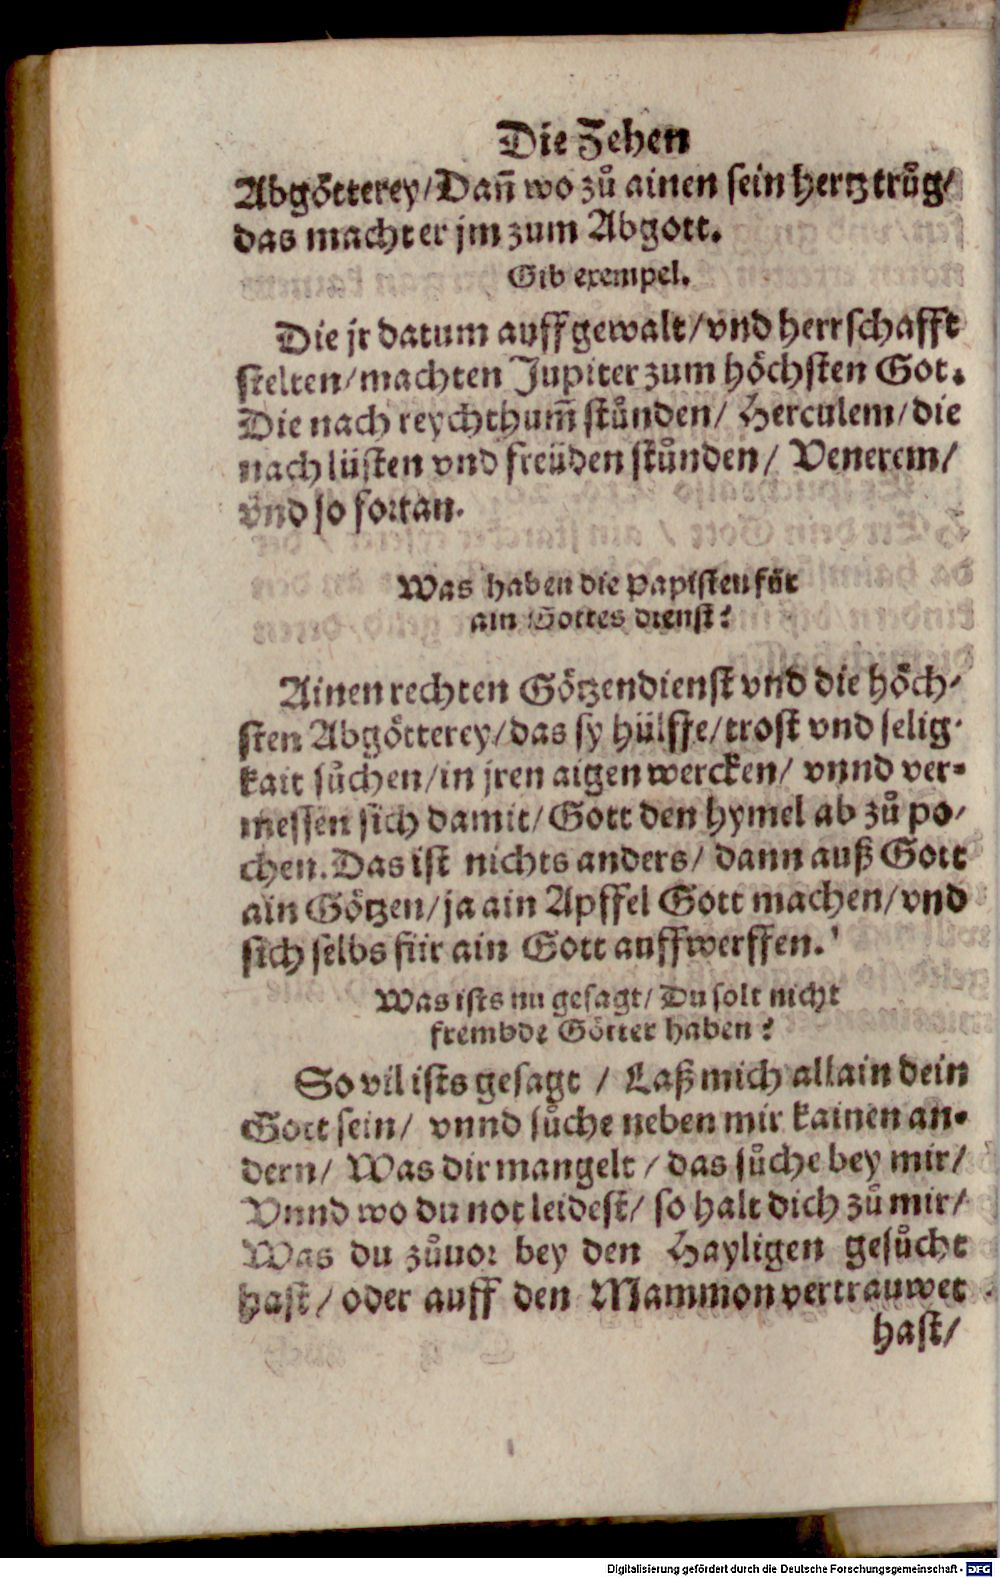 Die Zehen
Abgötterey/Dañ wo zů ainen sein hertz trůg/
das macht er jm zum Abgott.
Gib exempel.
Die jr datum auff gewalt/vnd herrschafft
stelten/machten Jupiter zum höchsten Got.
Die nach reychthum̃ stůnden/ Herculem/die
nach lüsten vnd freüden stůnden/ Venerem/
vnd so fortan.
Was haben die papisten für
ain Gottes dienst?
Ainen rechten Götzendienst vnd die höch-
sten Abgötterey/das sy hülffe/trost vnd selig-
kait sůchen/in jren aigen wercken/ vnnd ver-
messen sich damit/Gott den hymel ab zů po-
chen. Das ist nichts anders/ dann auß Gott
ain Götzen/ja ain Apffel Gott machen/vnd
sich selbs für ain Gott auffwerffen.
Was ists nu gesagt/Du solt nicht
frembde Götter haben?
So vil ists gesagt / Laß mich allain dein
Gott sein/ vnnd sůche neben mir kainen an-
dern/ Was dir mangelt / das sůche bey mir/
Vnnd wo du not leidest/ so halt dich zů mir/
Was du zůuor bey den Hayligen gesůcht
hast/ oder auff den Mammon vertrauwet
hast/
Digitalisierung gefördert durch die Deutsche Forschungsgemeinschaft - DFG